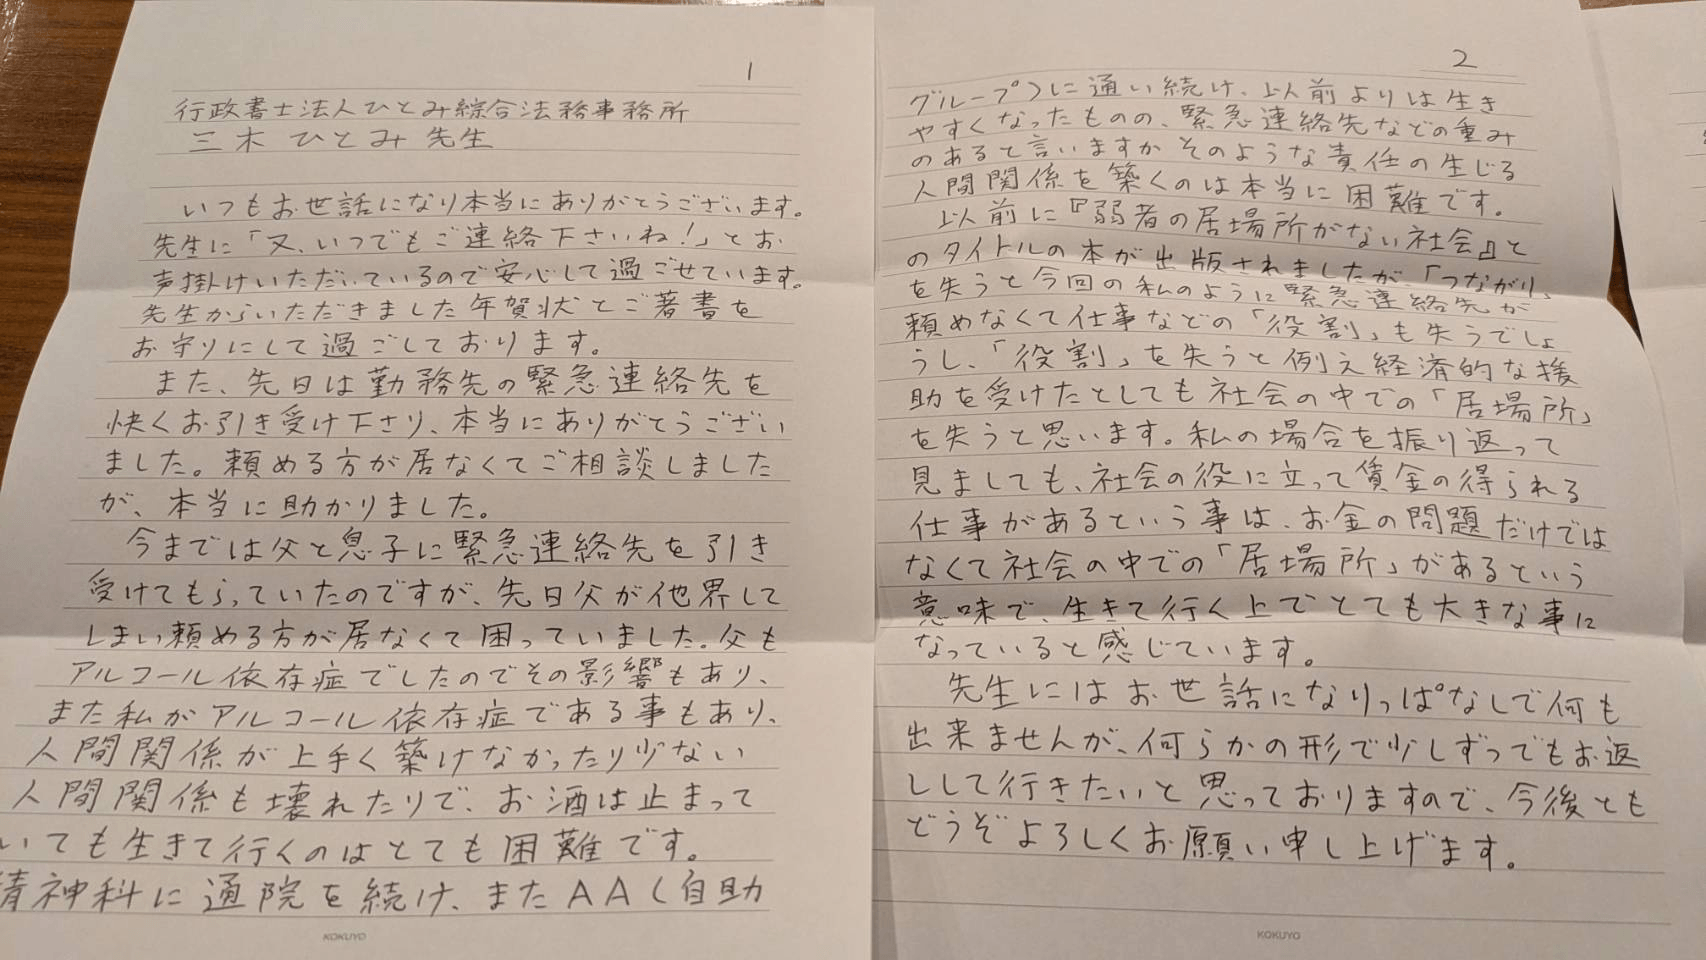 1
行政書士法人ひとみ綜合法務事務所
三木ひとみ先生
いつもお世話になり本当にありがとうございます。
先生に「又、いつでもご連絡下さいね!」とお
声掛けいただいているので安心して過ごせています。
先生からいただきました年賀状とご著書を
お守りにして過ごしております。
また、先日は勤務先の緊急連絡先を
快くお引き受け下さり、本当にありがとうござい
ました。頼める方が居なくてご相談しました
が、本当に助かりました。
今までは父と息子に緊急連絡先を引き
受けてもらっていたのですが、先日父が他界して
しまい頼める方が居なくて困っていました。父も
アルコール依存症でしたのでその影響もあり、
また私がアルコール依存症である事もあり、
人間関係が上手く築けなかったり少ない
人間関係も壊れたりで、お酒は止まって
いても生きて行くのはとても困難です。
精神科に通院を続け、またAA(自助
KOKUYO
2
グループ)に通い続け、以前よりは生き
やすくなったものの、緊急連絡先などの重み
のあると言いますかそのような責任の生じる
人間関係を築くのは本当に困難です。
以前に『弱者の居場所がない社会』と
のタイトルの本が出版されましたが、「つながり」
を失うと今回の私のように緊急連絡先が
頼めなくて仕事などの「役割」も失うでしょ
うし、「役割」を失うと例え経済的な援
助を受けたとしても社会の中での「居場所」
を失うと思います。私の場合を振り返って
見ましても、社会の役に立って賃金の得られる
仕事があるという事は、お金の問題だけでは
なくて社会の中での「居場所」があるという
意味で、生きて行く上でとても大きな事に
なっていると感じています。
先生にはお世話になりっぱなしで何も
出来ませんが、何らかの形で少しずつでもお返
しして行きたいと思っておりますので、今後とも
どうぞよろしくお願い申し上げます。
KOKUYO